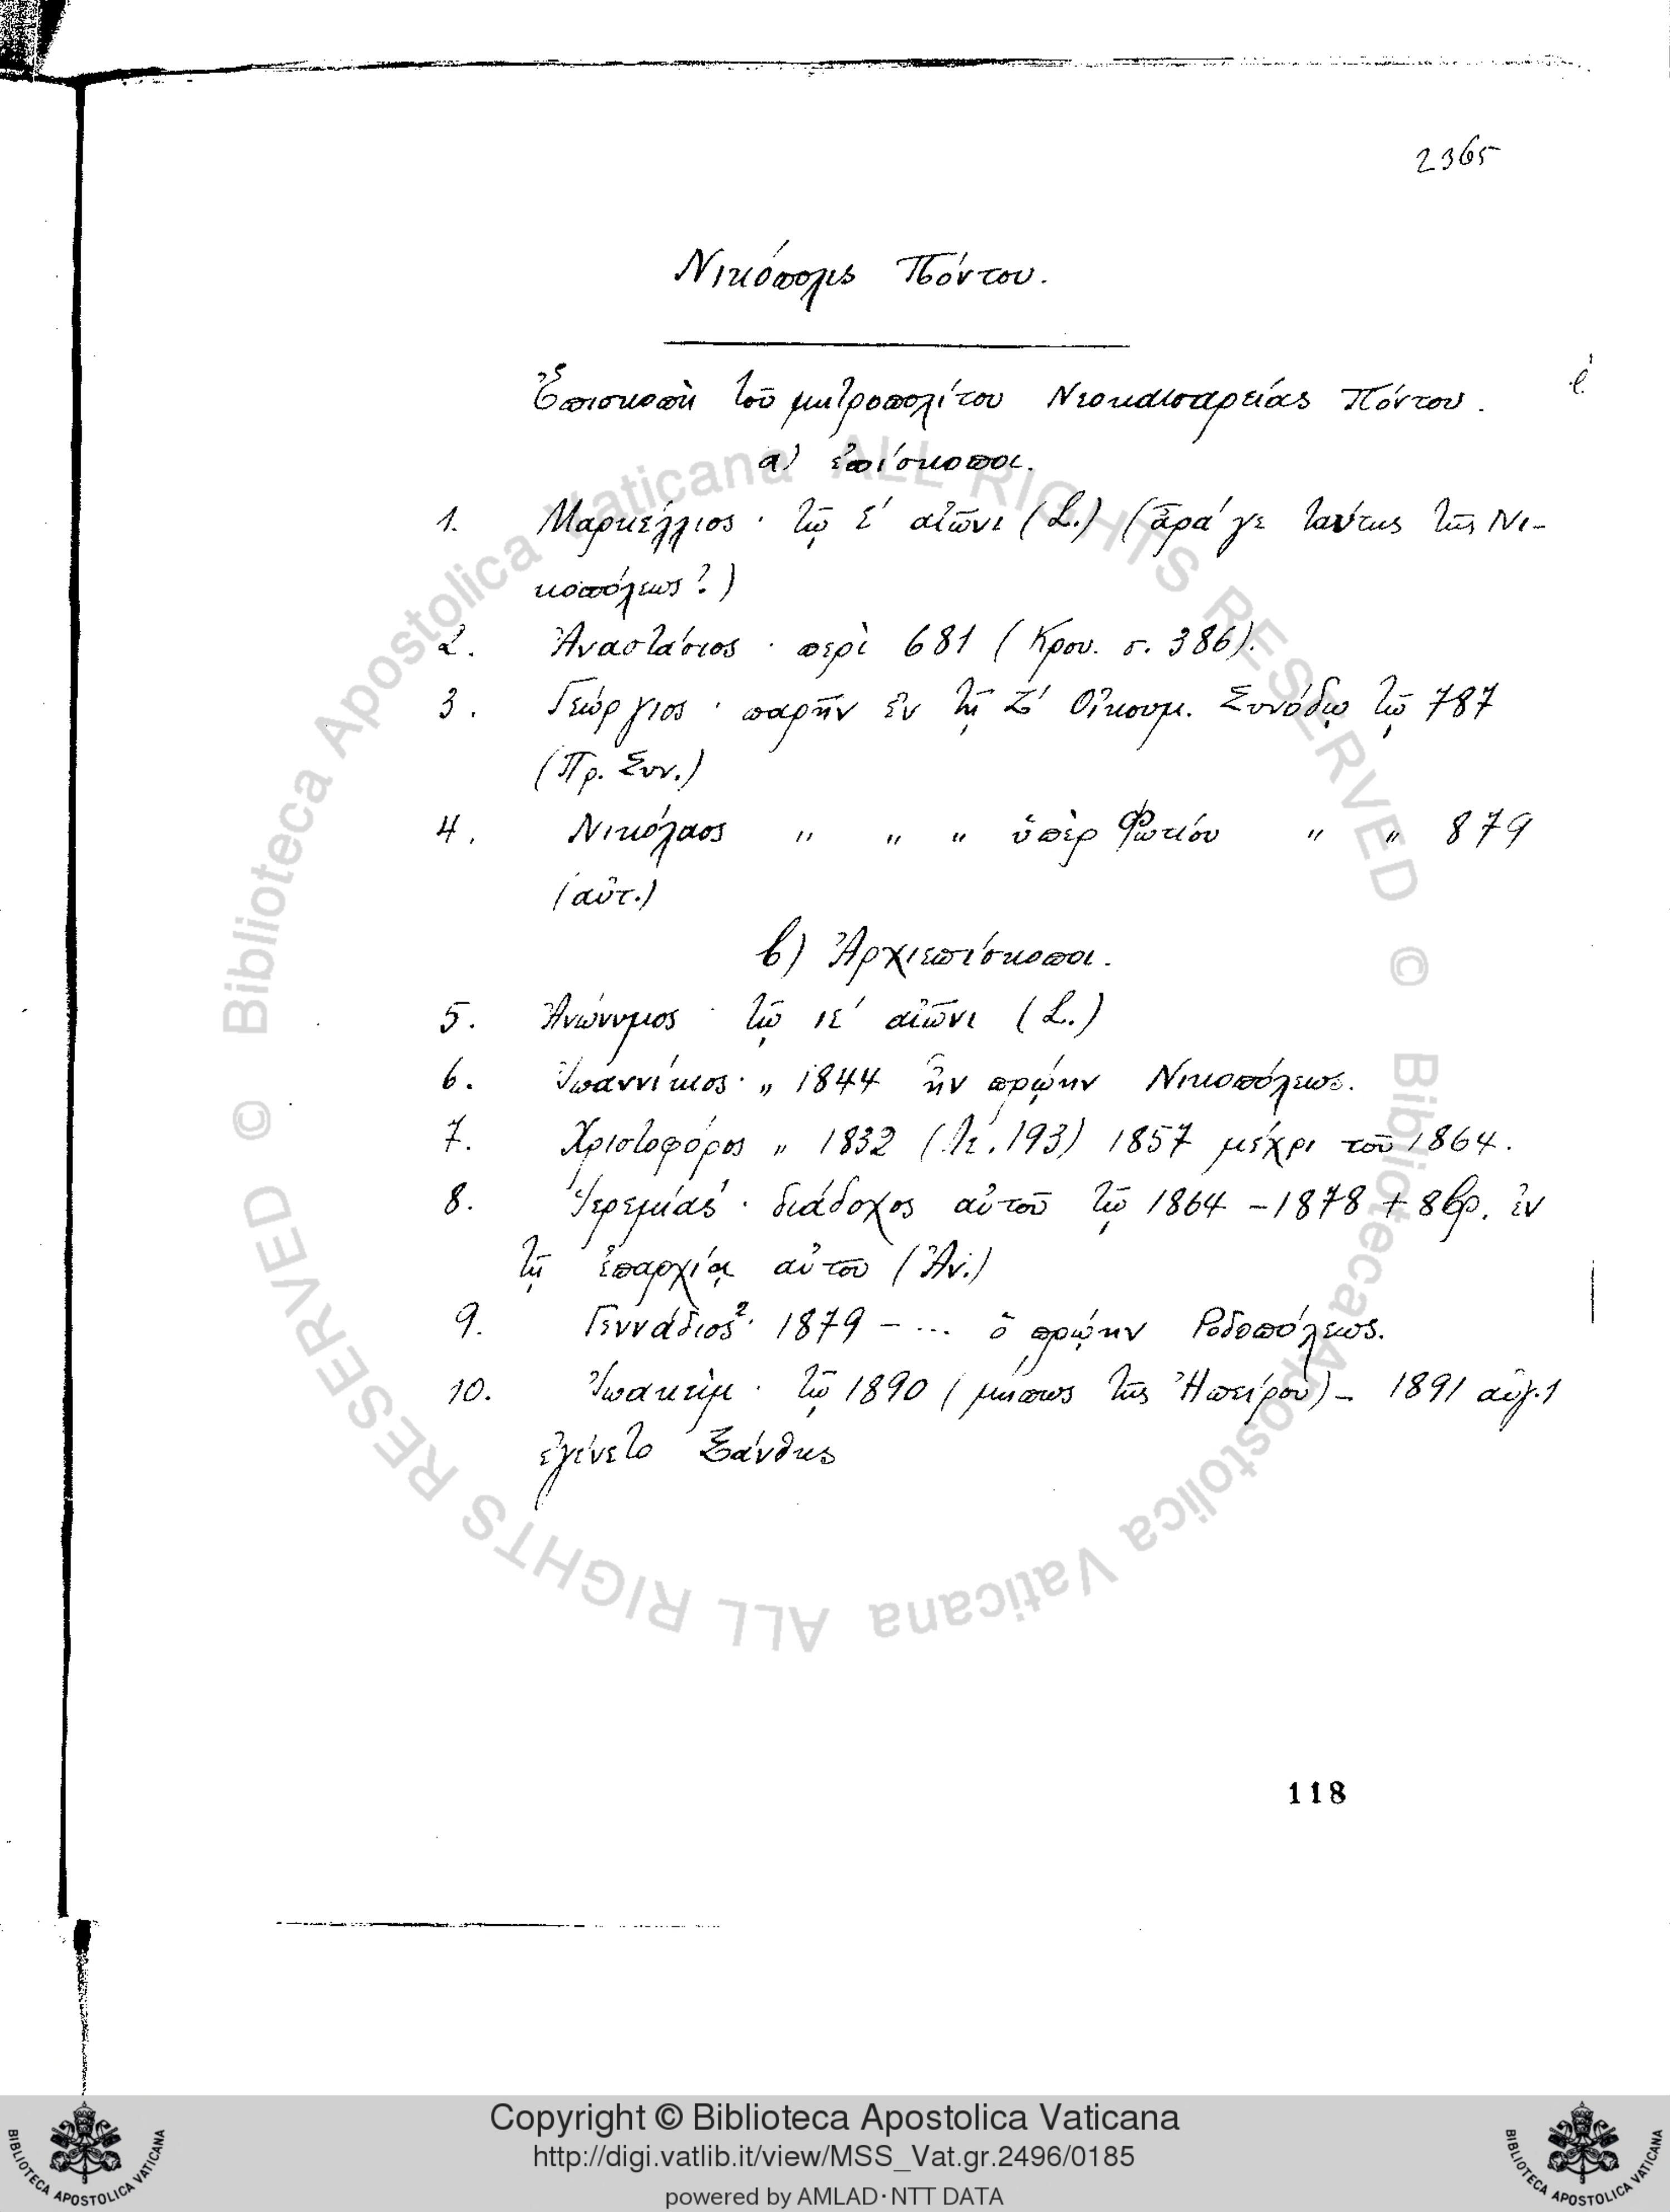 2365
Νικόπολις Πόντου.
Ἐπισκοπὴ τοῦ μητροπολίτου Νεοκαισαρείας Πόντου.
α) ἐπίσκοποι.
1. Μαρκέλλιος · τῷ ε′ αἰῶνι (L.) (ἆρά γε ταύτης τῆς Νι-
κοπόλεως?)
2. Ἀναστάσιος · περὶ 681 (Κρου. σ. 386).
3. Γεώργιος · παρῆν ἐν τῇ Ζ′ Οἰκουμ. Συνόδῳ τῷ 787
(Πρ. Συν.)
4. Νικόλαος " " " ὑπὲρ Φωτίου " " 879
(αὐτ.)
β) Ἀρχιεπίσκοποι.
5. Ἀνώνυμος · τῷ ιε′ αἰῶνι (L.)
6. Ἰωαννίκιος · „ 1844 ἦν πρῴην Νικοπόλεως.
7. Χριστοφόρος „ 1832 ( 193) 1857 μέχρι τοῦ 1864.
8. Ἱερεμίας · διάδοχος αὐτοῦ τῷ 1864 - 1878 + 8βρ. ἐν
τῇ ἐπαρχίᾳ αὐτοῦ (Ἀν.)
9. Γεννάδιος · 1879 - ... ὁ πρῴην Ροδοπόλεως.
10. Ἰωακεὶμ · τῷ 1890 (μήπως τῆς Ἠπείρου) - 1891 αὐγ. 1
ἐγένετο Ξάνθης
118
© Biblioteca Apostolica Vaticana ALL RIGHTS RESERVED © Biblioteca Apostolica Vaticana ALL RIGHTS RESERVED
Copyright © Biblioteca Apostolica Vaticana
http://digi.vatlib.it/view/MSS_Vat.gr.2496/0185
powered by AMLAD·NTT DATA
BIBLIOTECA APOSTOLICA VATICANA
BIBLIOTECA APOSTOLICA VATICANA